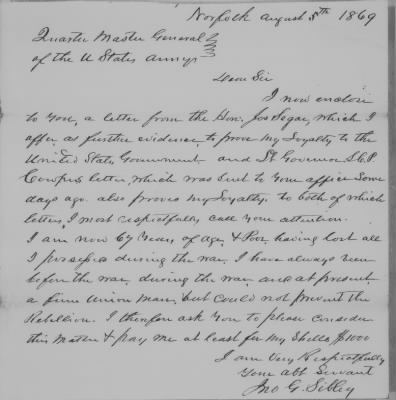 Norfolk August 5th 1869
Quarter Master General
of the U States Army
Dear Sir
I now enclose
to you, a letter from the Hon. Jos Segar, which I
offer as further evidence to prove my Loyalty to the
United States Government and Lt Governor L.C.P.
Cowpers letter, which was sent to your office Some
days ago also proves my Loyalty. to both of which
letters, I most respectfully call your attention.
I am now 67 years of age, & Poor, having lost all
I possessed during the war, I have always been
before the war, during the war, and at present
a firm Union man, but could not prevent the
Rebellion. I therefore ask you to please consider
this Matter & pay me at least for my Shells $1000
I am Very Respectfully
Your obt Servant
Jno G. Sibley